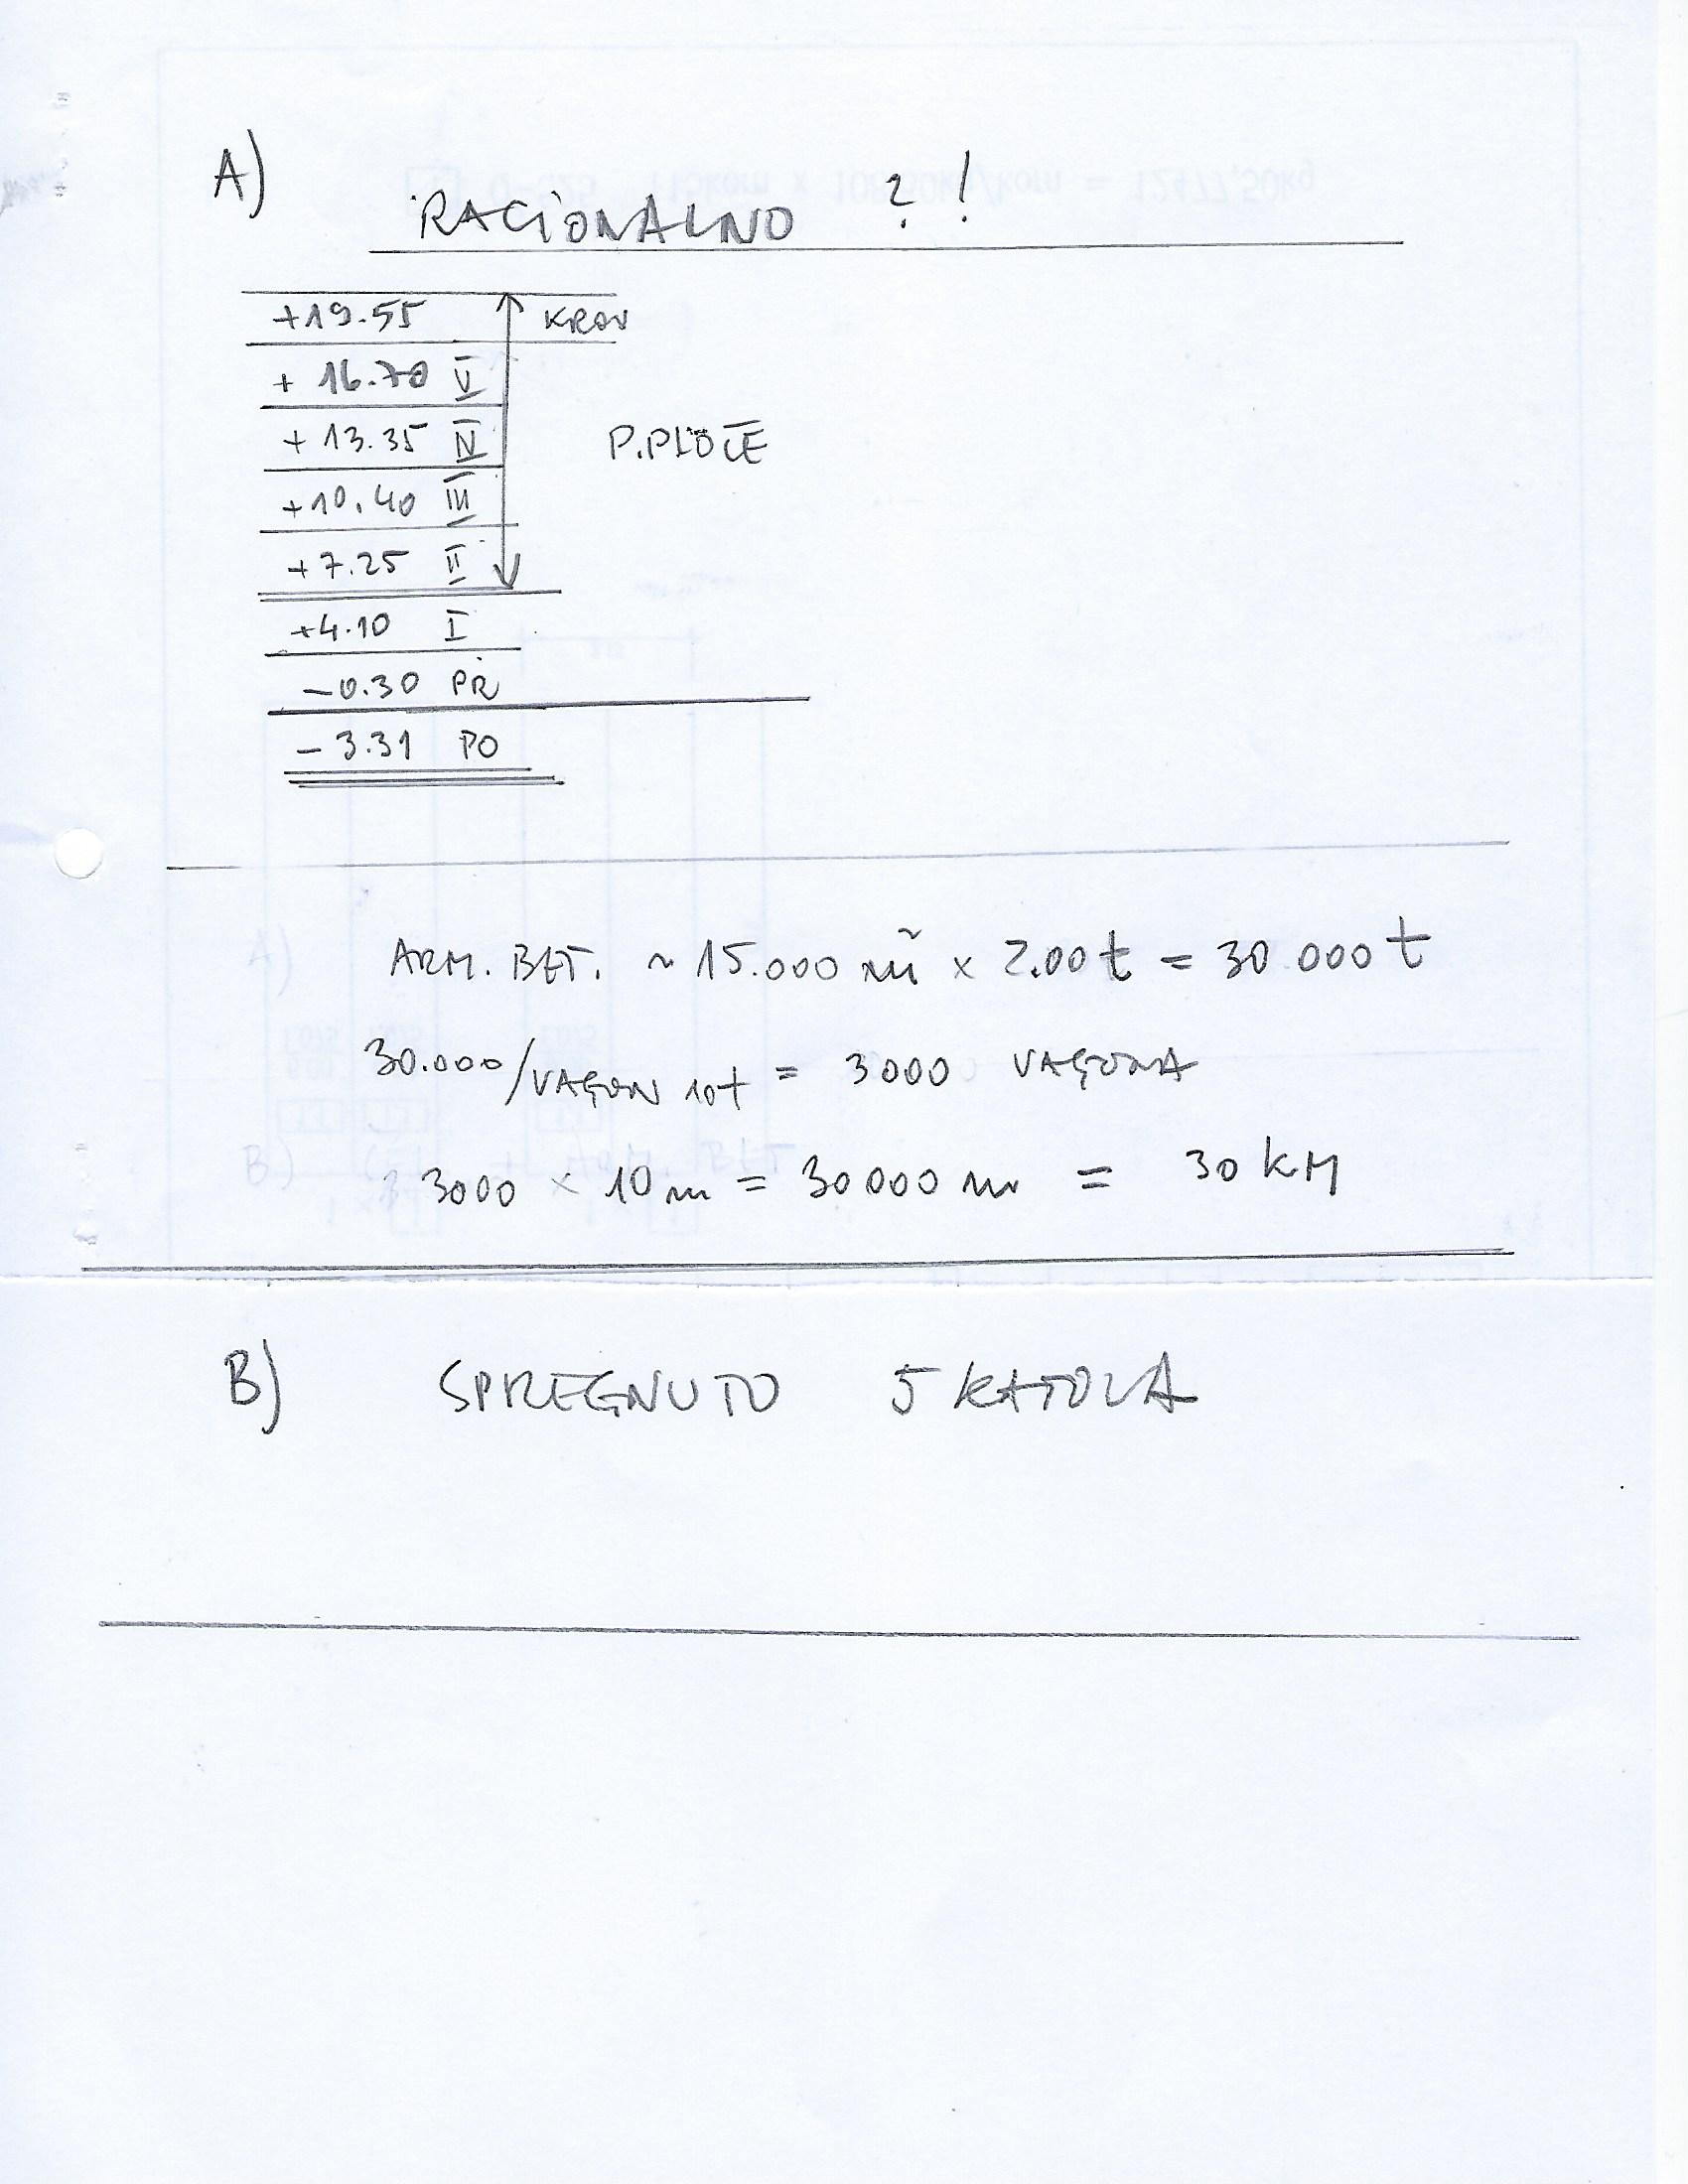 A)
RACIONALNO ?!
+19.55 KROV
+ 16.70 V
+ 13.35 IV
P.PLOČE
+10.40 III
+7.25 II
+4.10 I
-0.30 PR
-3.31 PO
ARM. BET. ~ 15.000 m³ x 2.00 t = 30 000 t
30.000/VAGON 10t = 3000 VAGONA
3000 x 10 m = 30000 m = 30 KM
B) SPREGNUTO 5 KATOVA